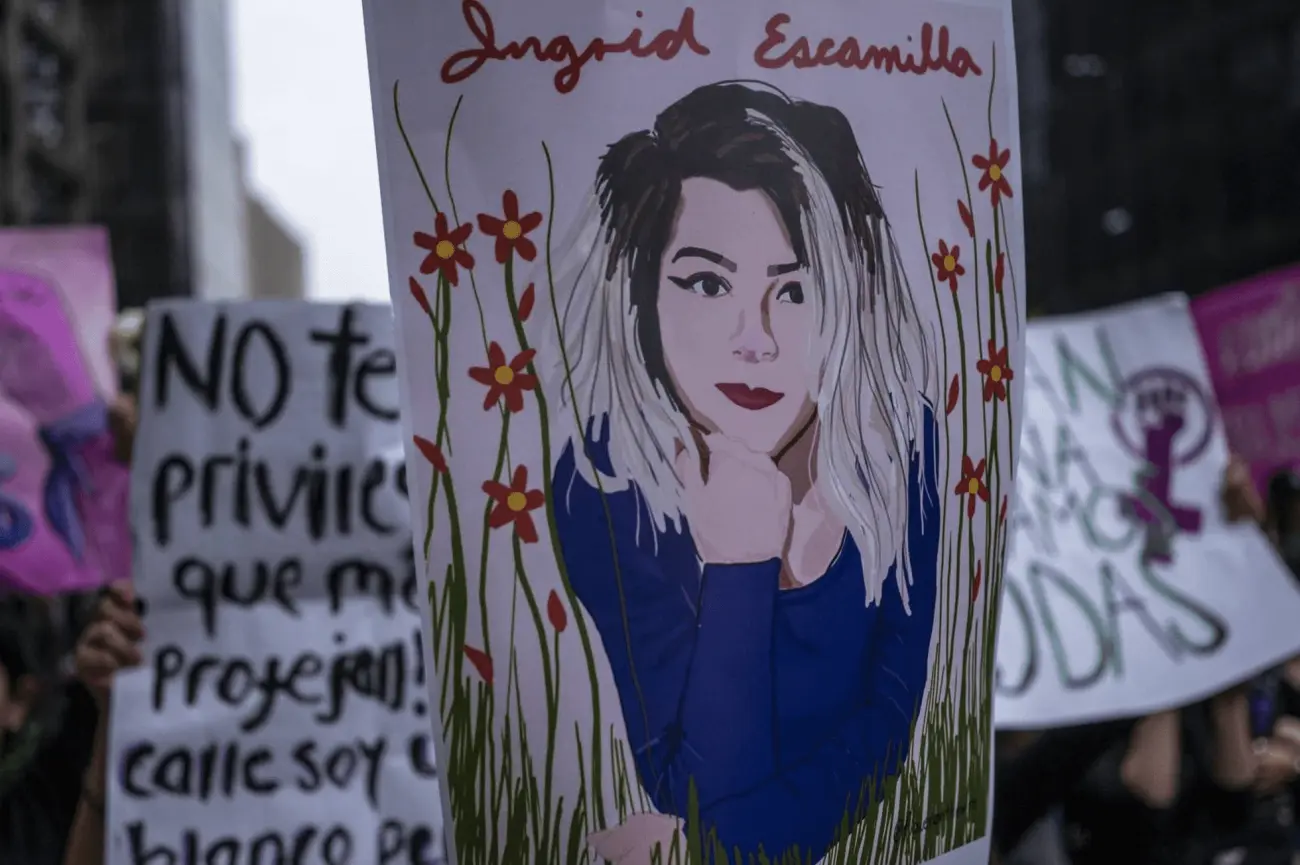 Ingrid Escamilla
NO te
privile
que má
Protejan!
calle soy
blanco pe
AMOS
ODAS